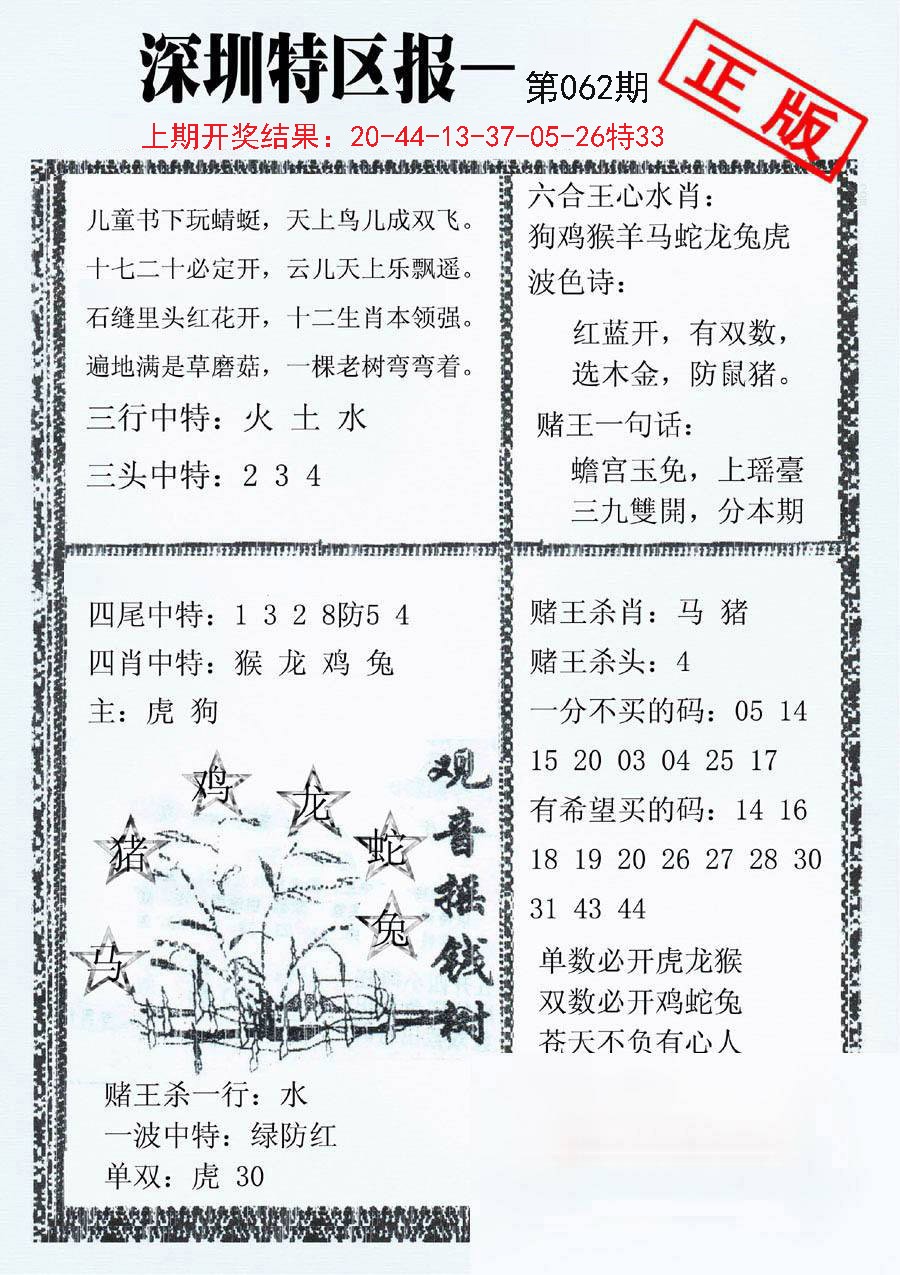 深圳特区报一
第062期
正版
上期开奖结果：20-44-13-37-05-26特33
儿童书下玩蜻蜓，天上鸟儿成双飞。
十七二十必定开，云儿天上乐飘遥。
石缝里头红花开，十二生肖本领强。
遍地满是草磨菇，一棵老树弯弯着。
三行中特：火 土 水
三头中特：2 3 4
六合王心水肖：
狗鸡猴羊马蛇龙兔虎
波色诗：
红蓝开，有双数，
选木金，防鼠猪。
赌王一句话：
蟾宫玉免，上瑶臺
三九雙開，分本期
四尾中特：1 3 2 8防5 4
四肖中特：猴 龙 鸡 兔
主：虎 狗
鸡
龙
猪
蛇
兔
马
观音摇钱树
赌王杀一行：水
一波中特：绿防红
单双：虎 30
赌王杀肖：马 猪
赌王杀头：4
一分不买的码：05 14
15 20 03 04 25 17
有希望买的码：14 16
18 19 20 26 27 28 30
31 43 44
单数必开虎龙猴
双数必开鸡蛇兔
苍天不负有心人